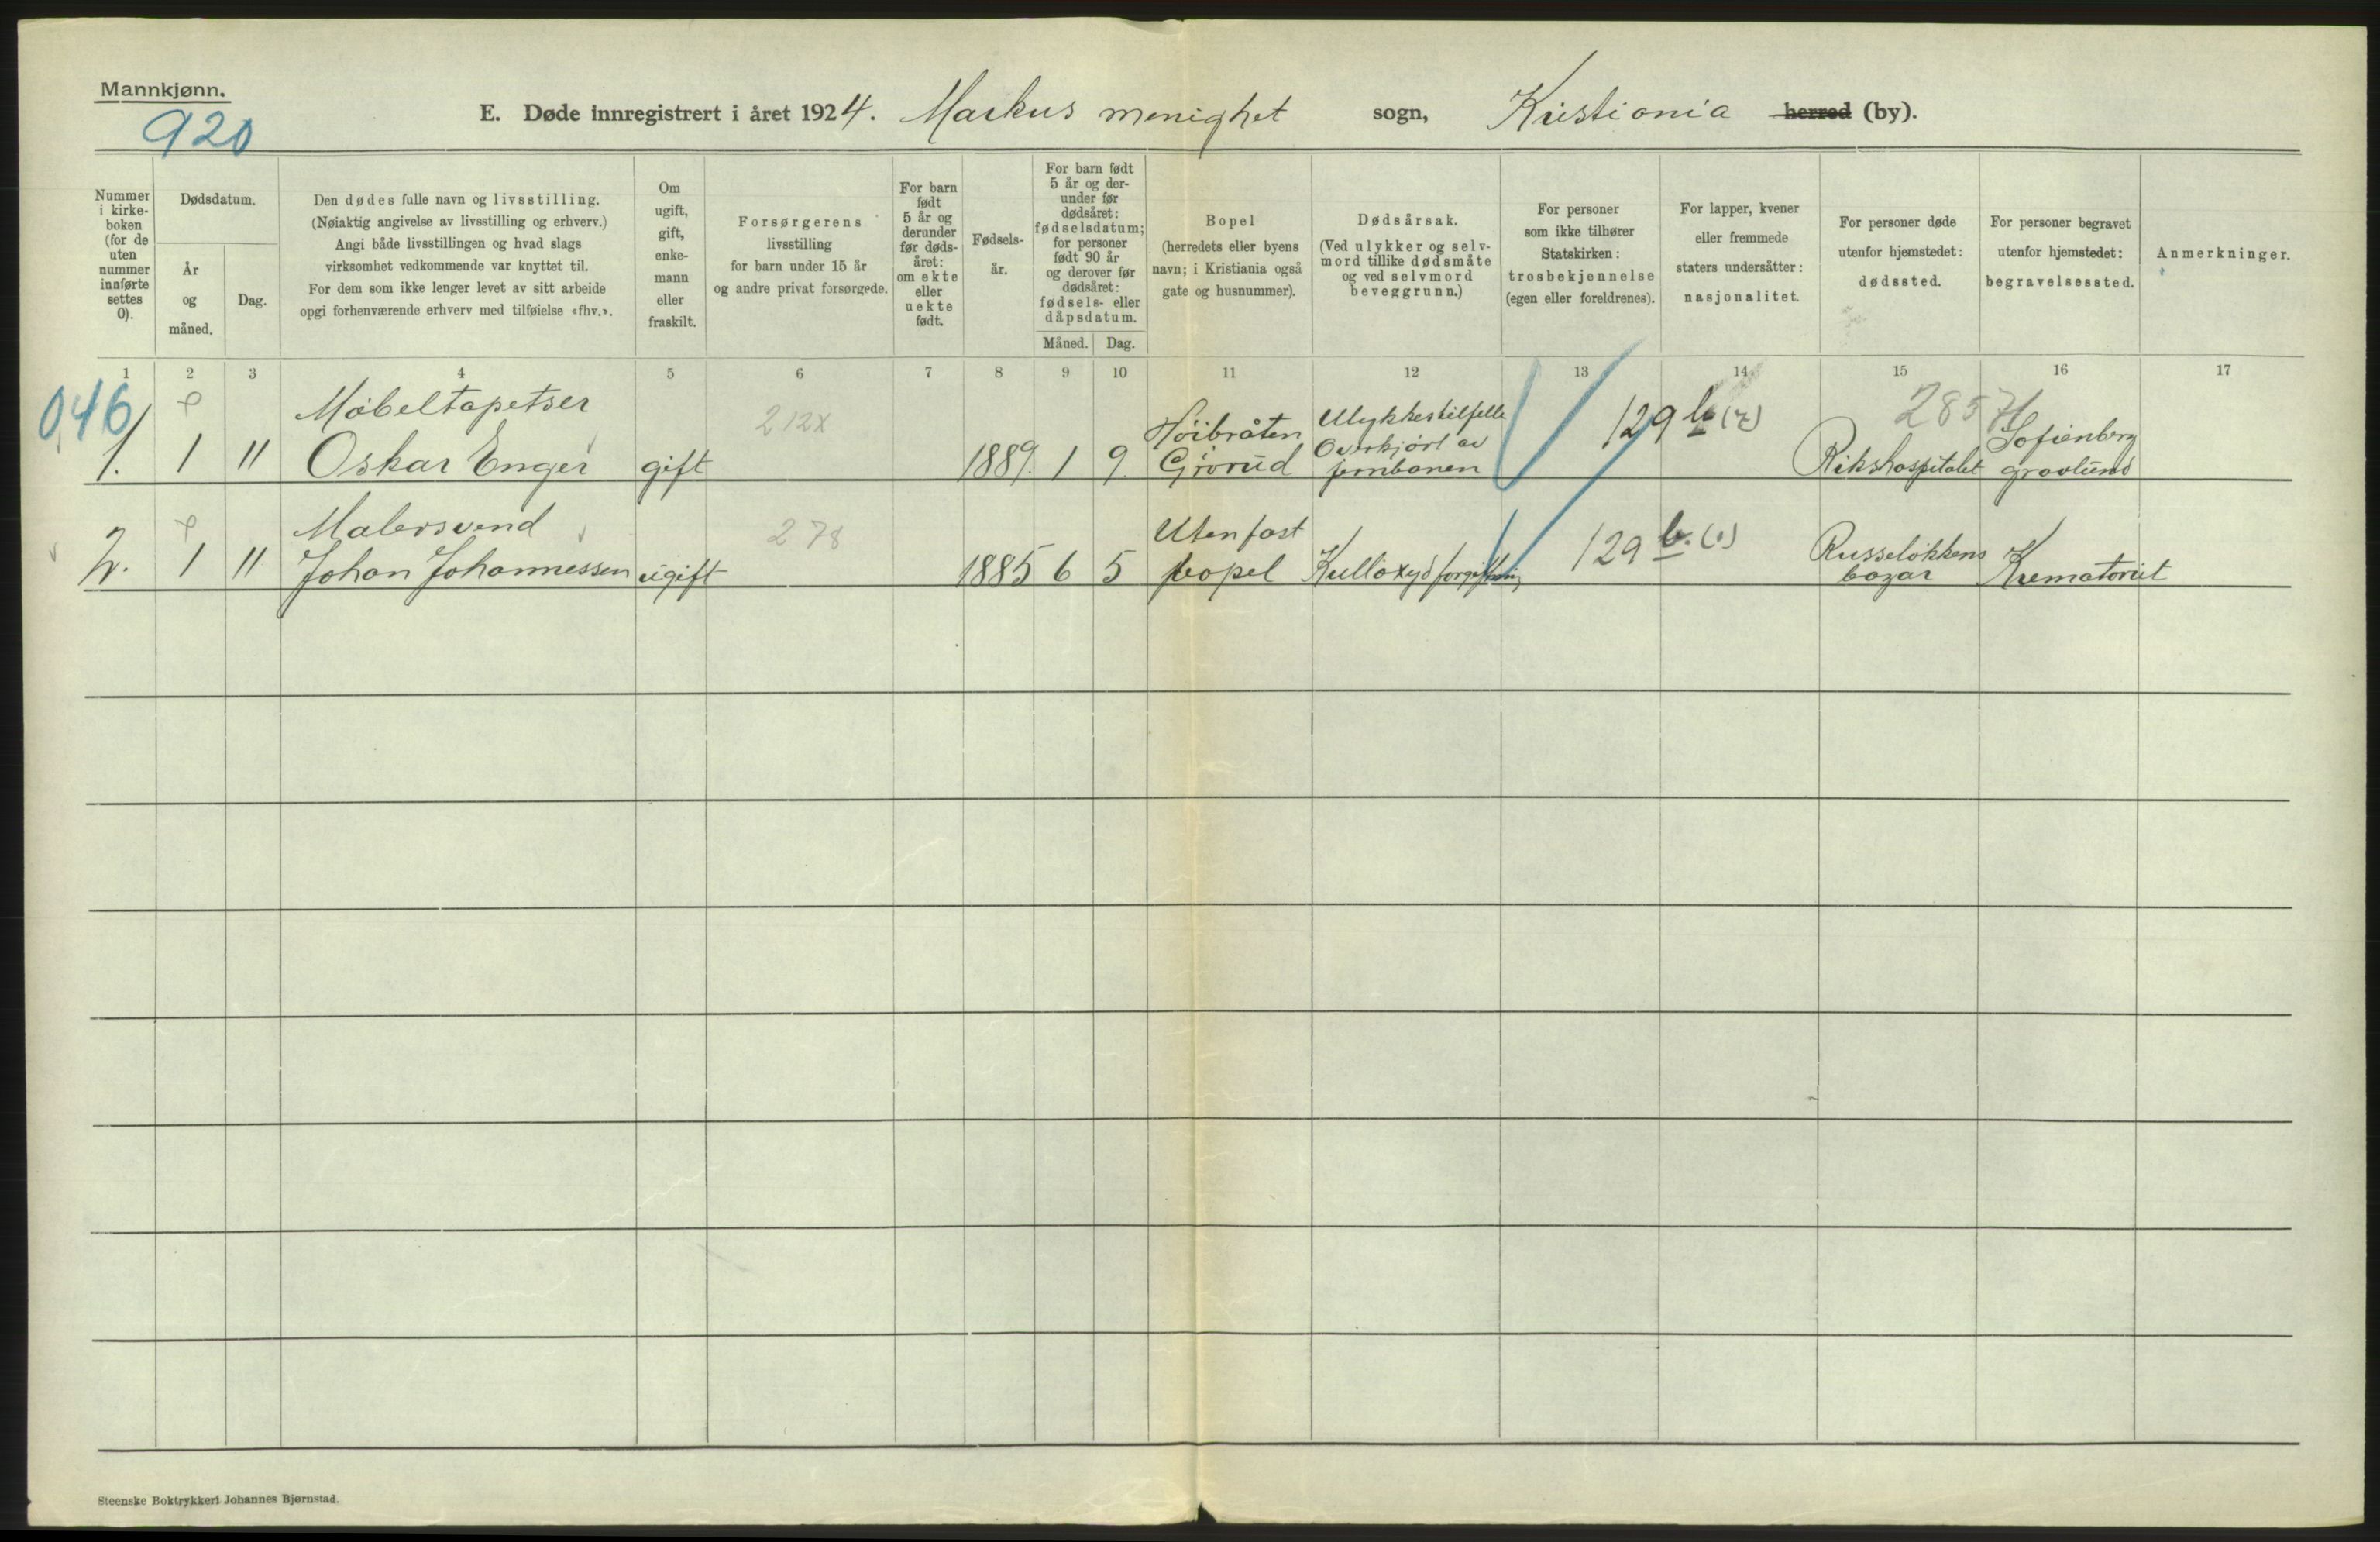 Mannkjønn.
920
E. Døde innregistrert i året 1924. Markus menighet sogn, Kristiania herred (by).
Nummer i kirke-boken (for de uten nummer innførte settes 0).
Dødsdatum.
År og måned.
Dag.
Den dødes fulle navn og livsstilling.
(Nøiaktig angivelse av livsstilling og erhverv.)
Angi både livsstillingen og hvad slags
virksomhet vedkommende var knyttet til.
For dem som ikke lenger levet av sitt arbeide
opgi forhenværende erhverv med tilføielse «fhv.».
Om ugift, gift, enke-mann eller fraskilt.
Forsørgerens
livsstilling
for barn under 15 år
og andre privat forsørgede.
For barn født 5 år og derunder før døds-året: om ekte eller uekte født.
Fødsels-år.
For barn født 5 år og der-under før dødsåret: fødselsdatum; for personer født 90 år og derover før dødsåret: fødsels- eller dåpsdatum.
Måned.
Dag.
Bopel
(herredets eller byens
navn; i Kristiania også
gate og husnummer).
Dødsårsak.
(Ved ulykker og selv-
mord tillike dødsmåte
og ved selvmord
beveggrunn.)
For personer
som ikke tilhører
Statskirken:
trosbekjennelse
(egen eller foreldrenes).
For lapper, kvener
eller fremmede
staters undersåtter:
nasjonalitet.
For personer døde
utenfor hjemstedet:
dødssted.
For personer begravet
utenfor hjemstedet:
begravelsessted.
Anmerkninger.
1 2 3 4 5 6 7 8 9 10 11 12 13 14 15 16 17
046
Møbeltapetser
212x
Høibråten
Ulykkestilfelle
Overkjørt av
129 b (2)
285
Sofienberg
1. 1 11 Oskar Enger gift 1889. 1 9. Grorud jernbanen Rikshospitalet gravlund
Malersvend
278
Uten fast
129 b. (1)
Russeløkkens
2. 1 11 Johan Johannessen ugift 1885 6 5 bopel Kulloxydforgiftning bazar Krematoriet
Steenske Boktrykkeri Johannes Bjørnstad.